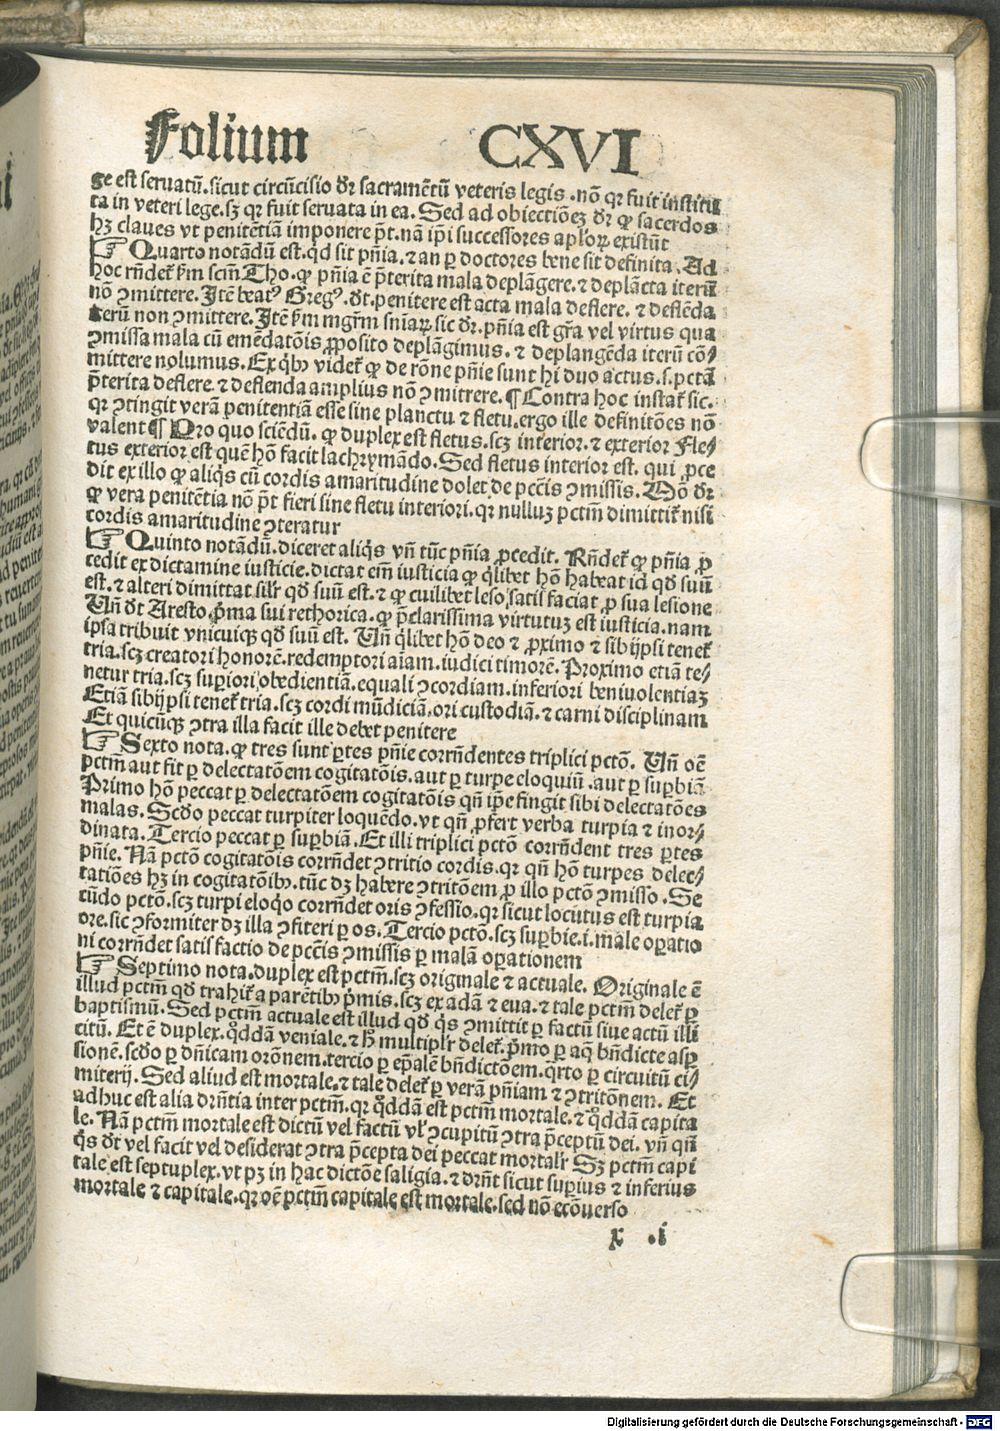 Folium CXVI
ge est seruatū.sicut circūcisio dr̄ sacramētū veteris legis .nō qr fuit institu
ta in veteri lege.sꝫ qr fuit seruata in ea. Sed ad obiectiōeꝫ dr̄ ꝙ sacerdos
hꝫ claues vt penitētiā imponere pt̄. nā ip̄i successores apl'oꝝ existūt
☞ Quarto notādū est.qd sit pn̄ia.⁊ an ꝑ doctores bene sit definita. Ad
hoc rn̄det' s̄m scm̄ Tho.ꝙ pn̄ia ē p̄terita mala deplāgere.⁊ deplācta iterū
nō ꝯmittere. Itē beatꝰ Gregꝰ.dt̄.penitere est acta mala deflere. ⁊ deflēda
iterū non ꝯmittere. Itē s̄m mgr̄m sniaꝝ sic dr̄. pn̄ia est gr̄a vel virtus qua
ꝯmissa mala cū emēdatōis ꝓposito deplāgimus. ⁊ deplangēda iterū cō⸗
mittere nolumus. Ex qͥbꝰ videt' ꝙ de rōne pn̄ie sunt hi duo actus.s.pctā
p̄terita deflere.⁊ deflenda amplius nō ꝯmitrere. ¶ Contra hoc instat' sic.
qr ꝯtingit verā penitentiā esse sine planctu ⁊ fletu.ergo ille definitōes nō
valent ¶ Pro quo sciēdū. ꝙ duplex est fletus.scꝫ interior.⁊ exterior Fle⸗
tus exterior est quē hō facit lachrymādo. Sed fletus interior est. qui ꝓce
dit ex illo ꝙ aliqͥs cū cordis amaritudine dolet de pctis ꝯmissis. Mō dr̄
ꝙ vera penitētia nō pt̄ fieri sine fletu interiori.qr nulluꝫ pctm̄ dimittit' nisi
cordis amaritudine ꝯteratur
☞ Quinto notādū.diceret aliqͥs vn̄ tūc pn̄ia ꝓcedit. Rn̄det' ꝙ pn̄ia ꝓ
cedit ex dictamine iusticie.dictat em̄ iusticia ꝙ qͥlibet hō habeat id qd suū
est.⁊ alteri dimittat silr̄ qd suū est.⁊ ꝙ cuilibet leso satis faciat ꝓ sua lesione
Vn̄ dt̄ Aresto.p̄ma sui rethorica.ꝙ p̄clarissima virtutuꝫ est iusticia.nam
ipsa tribuit vnicuiqꝫ qd suū est. Vn̄ qͥlibet hō deo ⁊ ꝓximo ⁊ sibijpsi tenet'
tria.scꝫ creatori honorē.redemptori aīam.iudici timorē. Proximo etiā te⸗
netur tria.scꝫ supiori obedientiā.equali ꝯcordiam.inferiori beniuolentiaꝫ
Etiā sibijpsi tenet' tria.scꝫ cordi mūdiciā.ori custodiā.⁊ carni disciplinam
Et quicūqꝫ ꝯtra illa facit ille debet penitere
☞ Sexto nota.ꝙ tres sunt ꝑtes pn̄ie corrn̄dentes triplici pctō. Vn̄ oē
pctm̄ aut fit ꝑ delectatōem cogitatōis.aut ꝑ turpe eloquiū.aut ꝑ suꝑbiā
Primo hō peccat ꝑ delectatōem cogitatōis qn̄ ip̄e fingit sibi delectatōes
malas. Scdo peccat turpiter loquēdo.vt qn̄ ꝓfert verba turpia ⁊ inor⸗
dinata. Tercio peccat ꝑ suꝑbiā. Et illi triplici pctō corrn̄dent tres ꝑtes
pn̄ie. Nā pctō cogitatōis corrn̄det ꝯtritio cordis.qr qn̄ hō turpes delec⸗
tatiōes hꝫ in cogitatōibꝰ.tūc dꝫ habere ꝯtritōem ꝓ illo pctō ꝯmisso. Se
cūdo pctō.scꝫ turpi eloqͦ corrn̄det oris ꝯfessio.qr sicut locutus est turpia
ore.sic ꝯformiter dꝫ illa ꝯfiteri ꝑ os. Tercio pctō.scꝫ suꝑbie.i.male oꝑatio
ni corrn̄det satis factio de pctis ꝯmissis ꝑ malā oꝑationem
☞ Septimo nota.duplex est pctm̄.scꝫ originale ⁊ actuale. Originale ē
illud pctm̄ qd trahit' a parētibꝰ p̄mis.scꝫ ex adā ⁊ eua.⁊ tale pctm̄ delet' ꝑ
baptismū. Sed pctm̄ actuale est illud qd qͥs ꝯmittit ꝑ factū siue actū illi
citū. Et ē duplex.qͦddā veniale.⁊ h̄ multiplr̄ delet'. p̄mo ꝑ aqͣ bn̄dicte asꝑ
sionē.scdo ꝑ dn̄icam orōnem.tercio ꝑ ep̄ale bn̄dictōem.qͣrto ꝑ circuitū ci⸗
miterij. Sed aliud est mortale.⁊ tale delet' ꝑ verā pn̄iam ⁊ ꝯtritōnem. Et
adhuc est alia drn̄tia inter pctm̄.qr qͦddā est pctm̄ mortale.⁊ qͦddā capita
le. Nā pctm̄ mortale est dictū vel factū vl' ꝯcupitū ꝯtra p̄ceptū dei. vn̄ qn̄
qͥs dt̄ vel facit vel desiderat ꝯtra p̄cepta dei peccat mortalr̄ Sꝫ pctm̄ capi
tale est septuplex.vt pꝫ in hac dictōe saligia.⁊ drn̄t sicut supius ⁊ inferius
mortale ⁊ capitale.qr oē pctm̄ capitale est mortale.sed nō ecōuerso
x .i
Digitalisierung gefördert durch die Deutsche Forschungsgemeinschaft - DFG